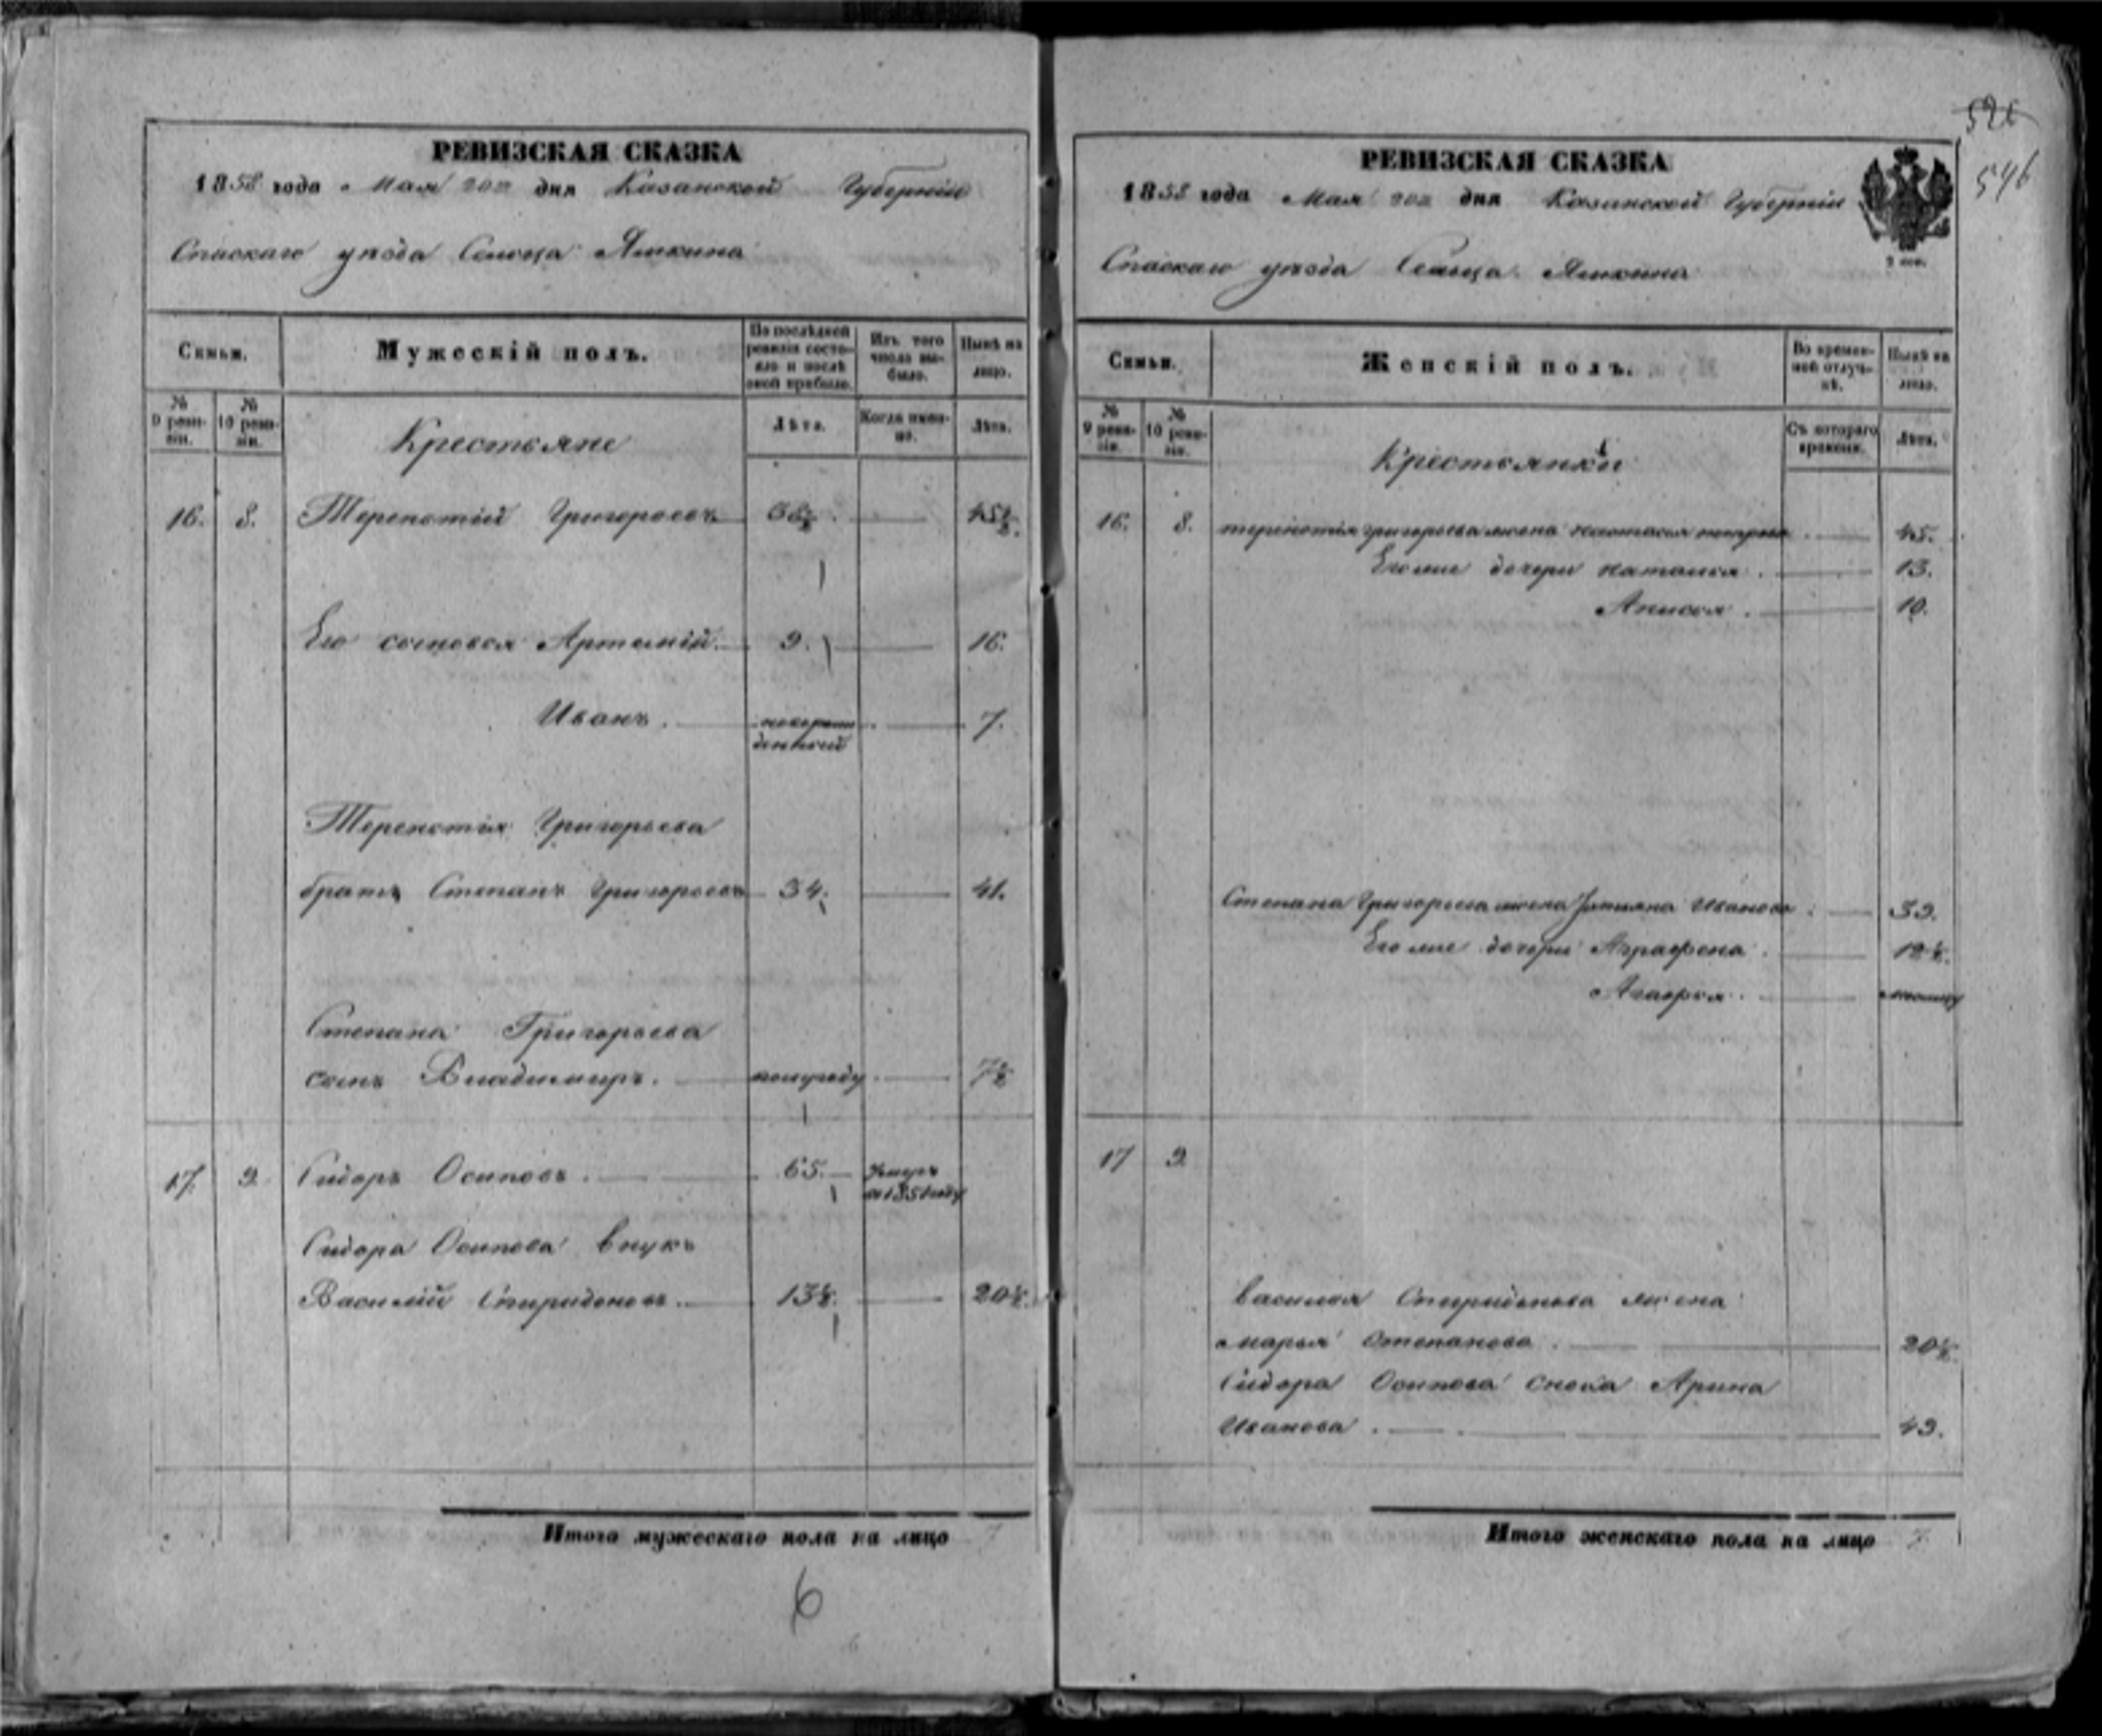 526
546
РЕВИЗСКАЯ СКАЗКА
1858 года Мая 20го дня Казанской Губерніи
Спаскаго уѣзда Сельца Ямкина
Семьи.
Мужескій полъ.
По послѣдней ревизіи состояло и послѣ оной прибыло.
Изъ того числа выбыло.
Нынѣ на лицо.
№ 9 ревизіи.
№ 10 ревизіи.
Крестьяне
Лѣта.
Когда именно.
Лѣта.
16. 8. Терентій Григорьевъ 38½ 45½.
Его сыновья Артемій. 9. 16.
Иванъ. новорожденный 7.
Терентія Григорьева
братъ Степанъ Григорьевъ 34. 41.
Степана Григорьева
сынъ Владимиръ. полугоду 7½
17. 9. Сидоръ Осиповъ. 65. Умеръ въ 1851 году
Сидора Осипова внукъ
Василій Спиридоновъ. 13½. 20½.
Итого мужескаго пола на лицо 7
6
РЕВИЗСКАЯ СКАЗКА
1858 года Мая 20го дня Казанской Губерніи
Спаскаго уѣзда Сельца Ямкина
Семьи.
Женскій полъ.
Во временной отлучкѣ.
Нынѣ на лицо.
№ 9 ревизіи.
№ 10 ревизіи.
Крестьянки
Съ котораго времени.
Лѣта.
16. 8. терентія григорьева жена настасья петрова 45.
Его же дочери наталья. 13.
Анисья. 10.
Степана Григорьева жена Татьяна Иванова. 39.
Его же дочери Аграфена. 12½.
Агафья.
17 9
Василья Спиридонова жена
марья Степанова. 20½.
Сидора Осипова сноха Арина
Иванова. 49.
Итого женскаго пола на лицо 7.